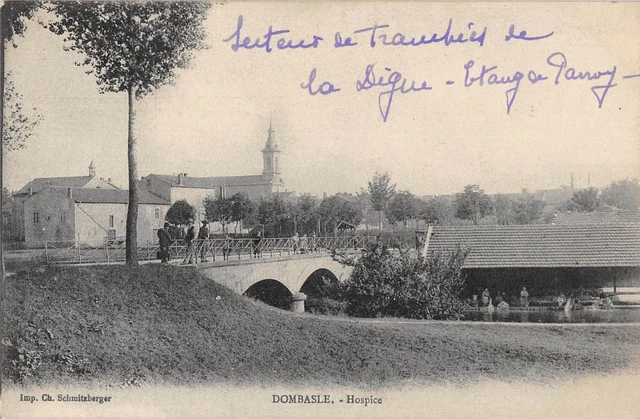 Secteur de Tranchées de
la Digue - Etang de Parroy -
Imp. Ch. Schmitzberger
DOMBASLE. - Hospice